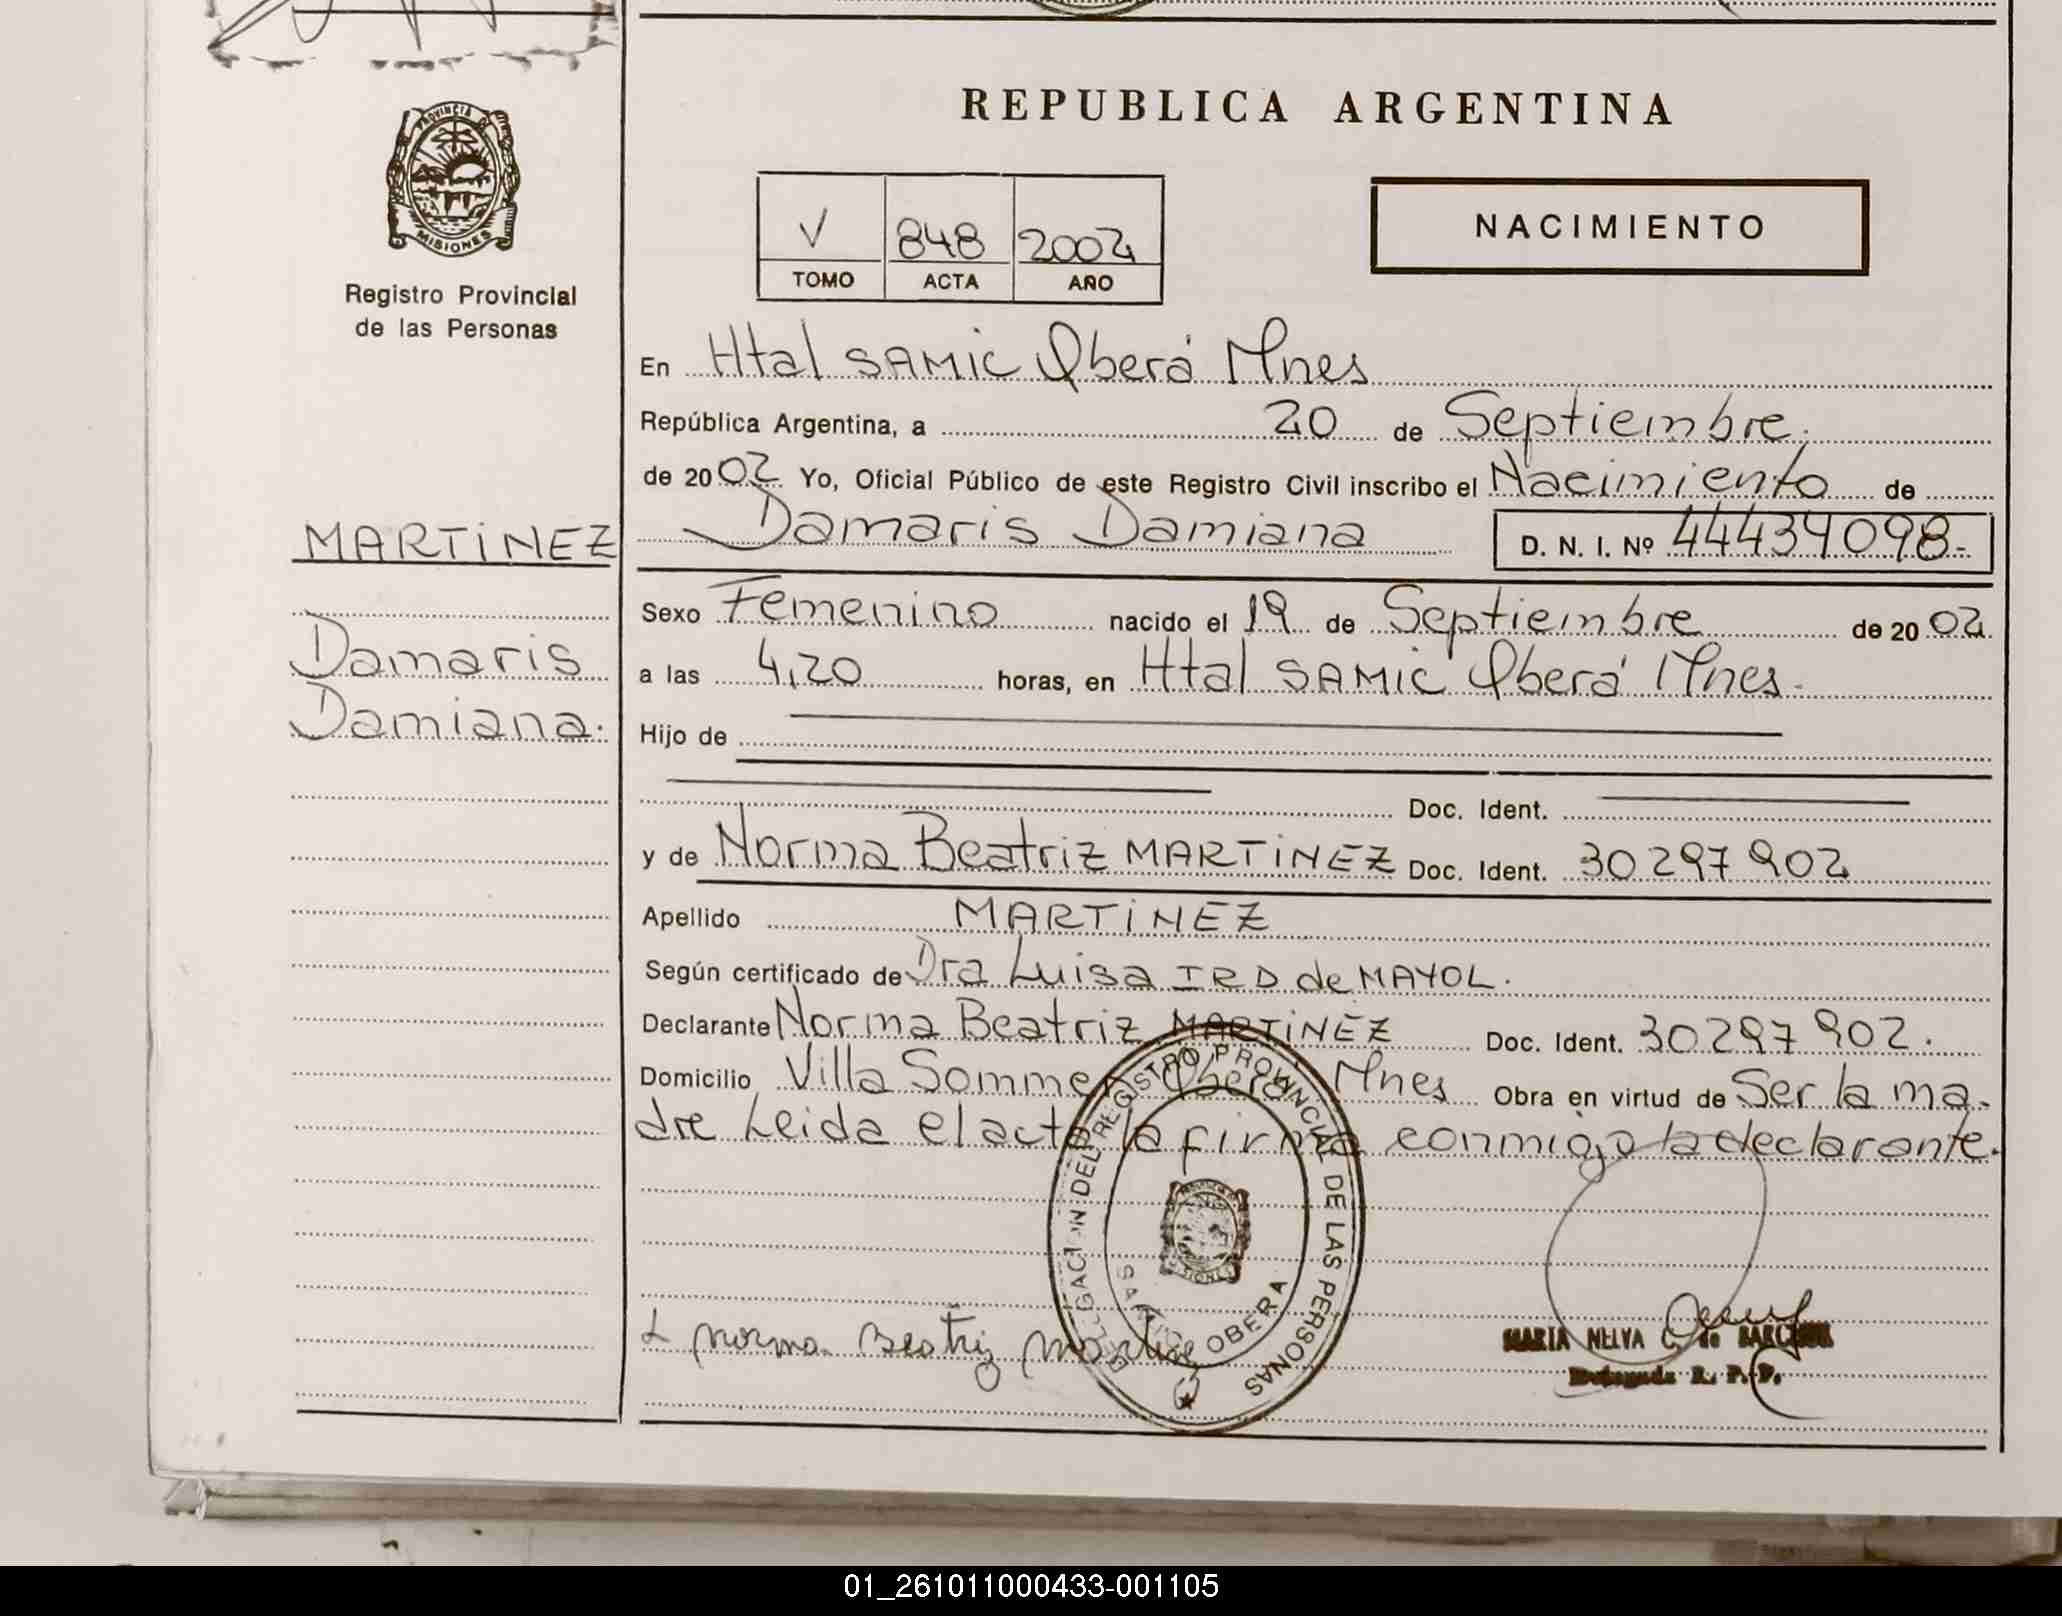 REPUBLICA ARGENTINA
PROVINCIA DE
MISIONES
Registro Provincial
de las Personas
V 848 2002
TOMO ACTA AÑO
NACIMIENTO
En Htal SAMIC Oberá Mnes
República Argentina, a 20 de Septiembre.
de 2002 Yo, Oficial Público de este Registro Civil inscribo el Nacimiento de
Damaris Damiana D. N. I. Nº 44434098.-
MARTINEZ
Damaris
Damiana.
Sexo Femenino nacido el 19 de Septiembre de 2002.
a las 4,20 horas, en Htal SAMIC Oberá Mnes.
Hijo de
Doc. Ident.
y de Norma Beatriz MARTINEZ Doc. Ident. 30297902
Apellido MARTINEZ
Según certificado de Dra Luisa IRD de MAYOL.
Declarante Norma Beatriz MARTINEZ Doc. Ident. 30297902.
Domicilio Villa Sommer Oberá Mnes Obra en virtud de Ser la ma-
dre Leida el acta la firma conmigo la declarante.
DELEGACION DEL REGISTRO PROVINCIAL DE LAS PERSONAS
MISIONES
OBERA
Norma Beatriz Martinez
MARIA NELVA C. de
Delegada R. P. P.
01_261011000433-001105